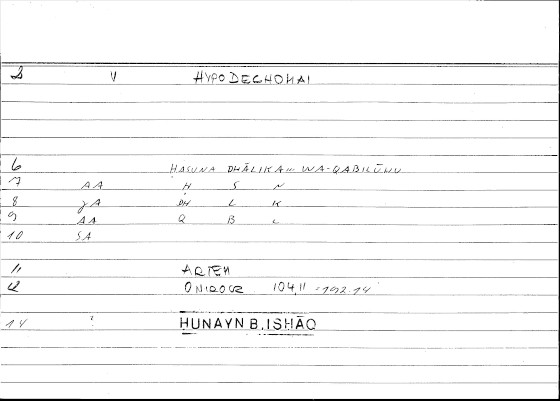 2 V HYPODECHOMAI
6 HASUNA DHĀLIKA... WA-QABILŪHU
7 AA H S N
8 γA DH L K
9 AA Q B L
10 SA
11 ARTEM
12 ONIROCR 104,11 = 192.14
14 : HUNAYN B. ISHĀQ